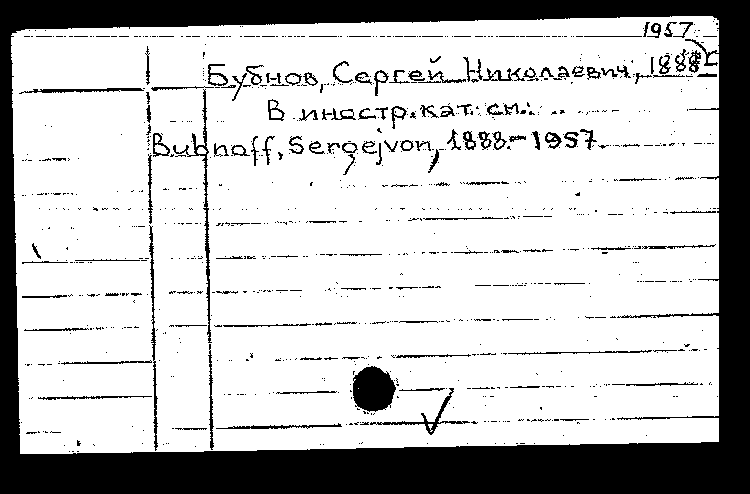 1957
Бубнов, Сергей Николаевич, 1888-
В иностр. кат. см.:
Bubnoff, Sergej von, 1888-1957.